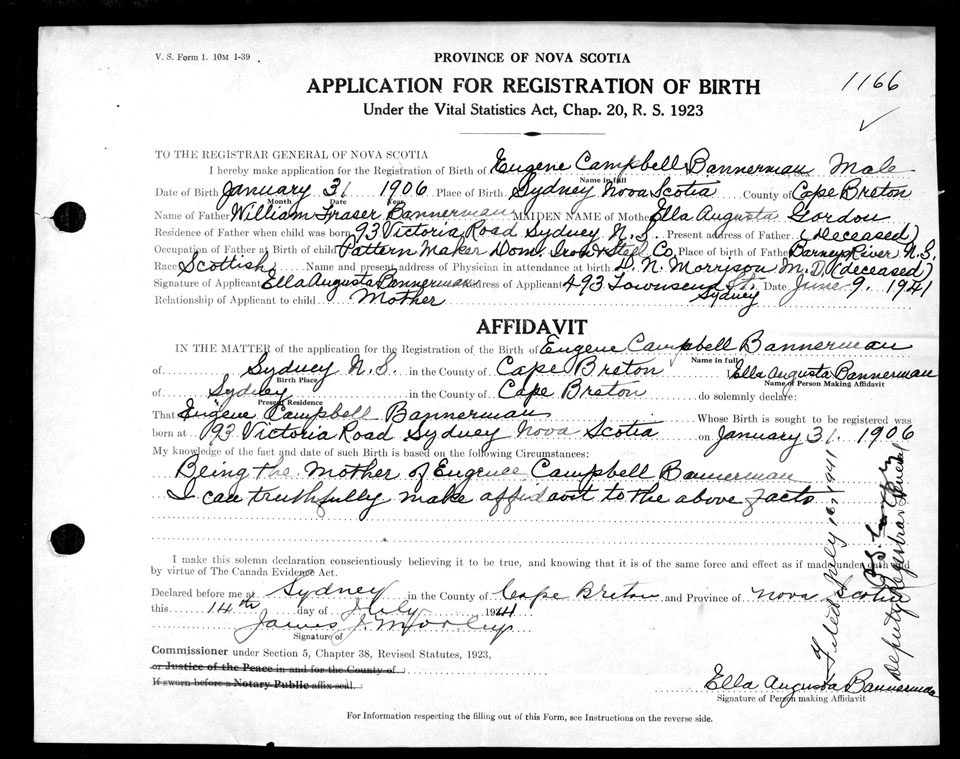 V. S. Form 1. 10M 1-39
PROVINCE OF NOVA SCOTIA
APPLICATION FOR REGISTRATION OF BIRTH
1166
Under the Vital Statistics Act, Chap. 20, R. S. 1923
TO THE REGISTRAR GENERAL OF NOVA SCOTIA
I hereby make application for the Registration of Birth of Eugene Campbell Bannerman Male
Name in full
Date of Birth January 31 1906 Place of Birth Sydney Nova Scotia County of Cape Breton
Month Date Year
Name of Father William Fraser Bannerman MAIDEN NAME of Mother Ella Augusta Gordon
Residence of Father when child was born 93 Victoria Road Sydney N.S. Present address of Father (deceased)
Occupation of Father at Birth of child Pattern Maker Dom. Iron & Steel Co. Place of Birth of Father Barneys River N.S.
Race Scottish Name and present address of Physician in attendance at birth D. N. Morrison M.D. (deceased)
Signature of Applicant Ella Augusta Bannerman Address of Applicant 493 Townsend St. Date June 9, 1941
Sydney
Relationship of Applicant to child Mother
AFFIDAVIT
IN THE MATTER of the application for the Registration of the Birth of Eugene Campbell Bannerman
Name in full
of Sydney N.S. in the County of Cape Breton I Ella Augusta Bannerman
Birth Place Name of Person Making Affidavit
of Sydney in the County of Cape Breton do solemnly declare:
Present Residence
That Eugene Campbell Bannerman Whose Birth is sought to be registered was
born at 193 Victoria Road Sydney Nova Scotia on January 31. 1906
My knowledge of the fact and date of such Birth is based on the following Circumstances:
Being the Mother of Eugence Campbell Bannerman
I can truthfully make affidavit to the above facts
I make this solemn declaration conscientiously believing it to be true, and knowing that it is of the same force and effect as if made under oath and
by virtue of The Canada Evidence Act.
Declared before me at Sydney in the County of Cape Breton and Province of Nova Scotia
this 14th day of July 1941
James J.
Signature of
Commissioner under Section 5, Chapter 38, Revised Statutes, 1923,
or Justice of the Peace in and for the County of
If sworn before a Notary Public affix seal.
Ella Augusta Bannerman
Signature of Person making Affidavit
For Information respecting the filling out of this Form, see Instructions on the reverse side.
Filed July 16, 1941
Deputy Registrar General